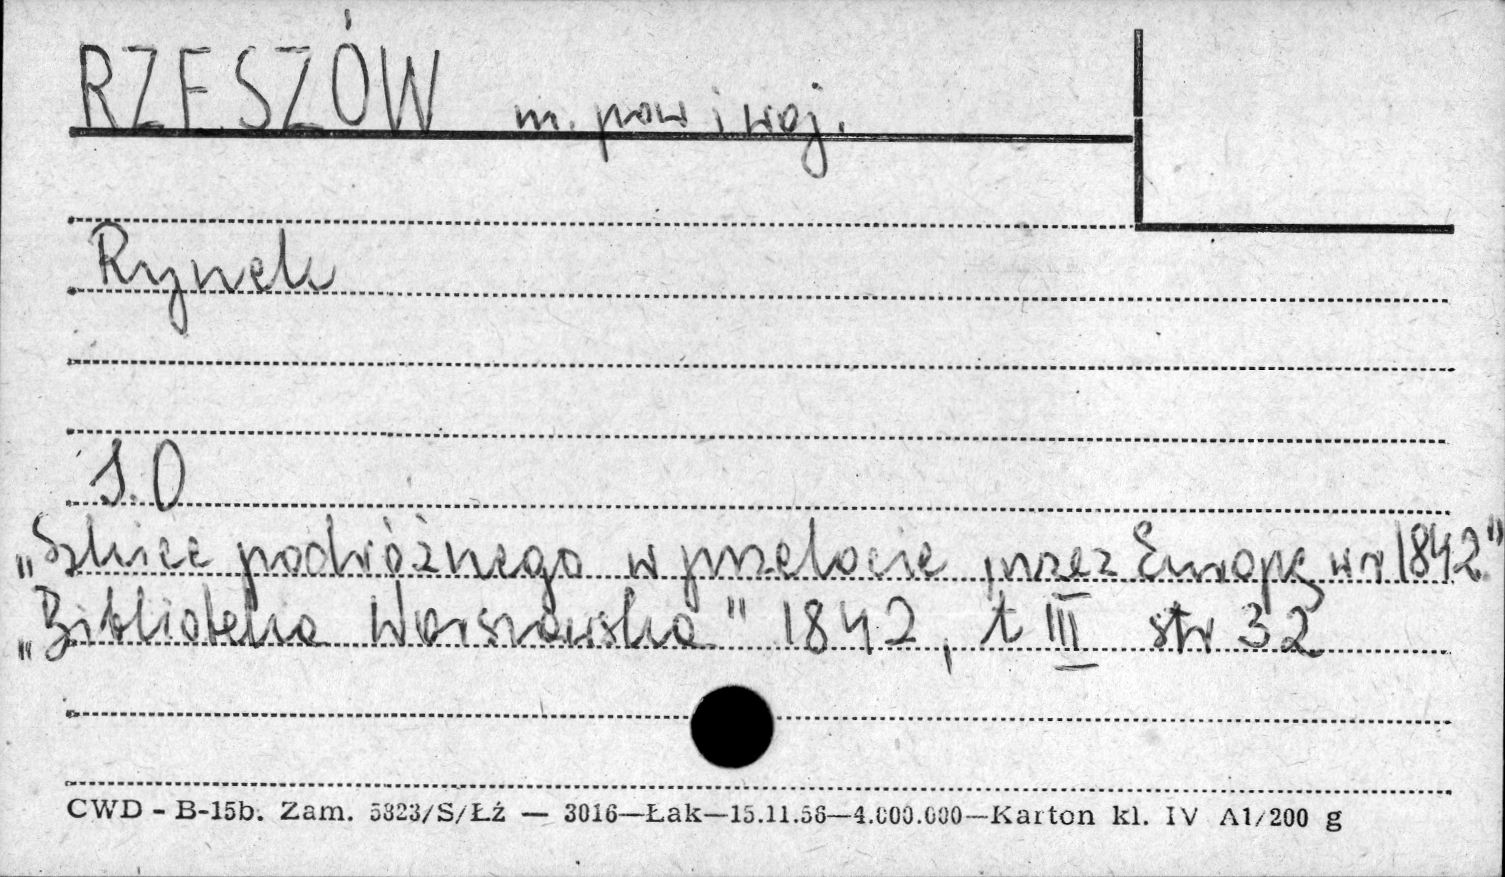 RZESZÓW m. pow i woj.
Rynek
J. O
„Szkice podróżnego w przelocie przez Europę w r 1842"
„Biblioteka Warszawska" 1842, t III str 32
CWD - B-15b. Zam. 5823/S/Łź — 3016—Łak—15.11.56—4.000.000—Karton kl. IV A1/200 g